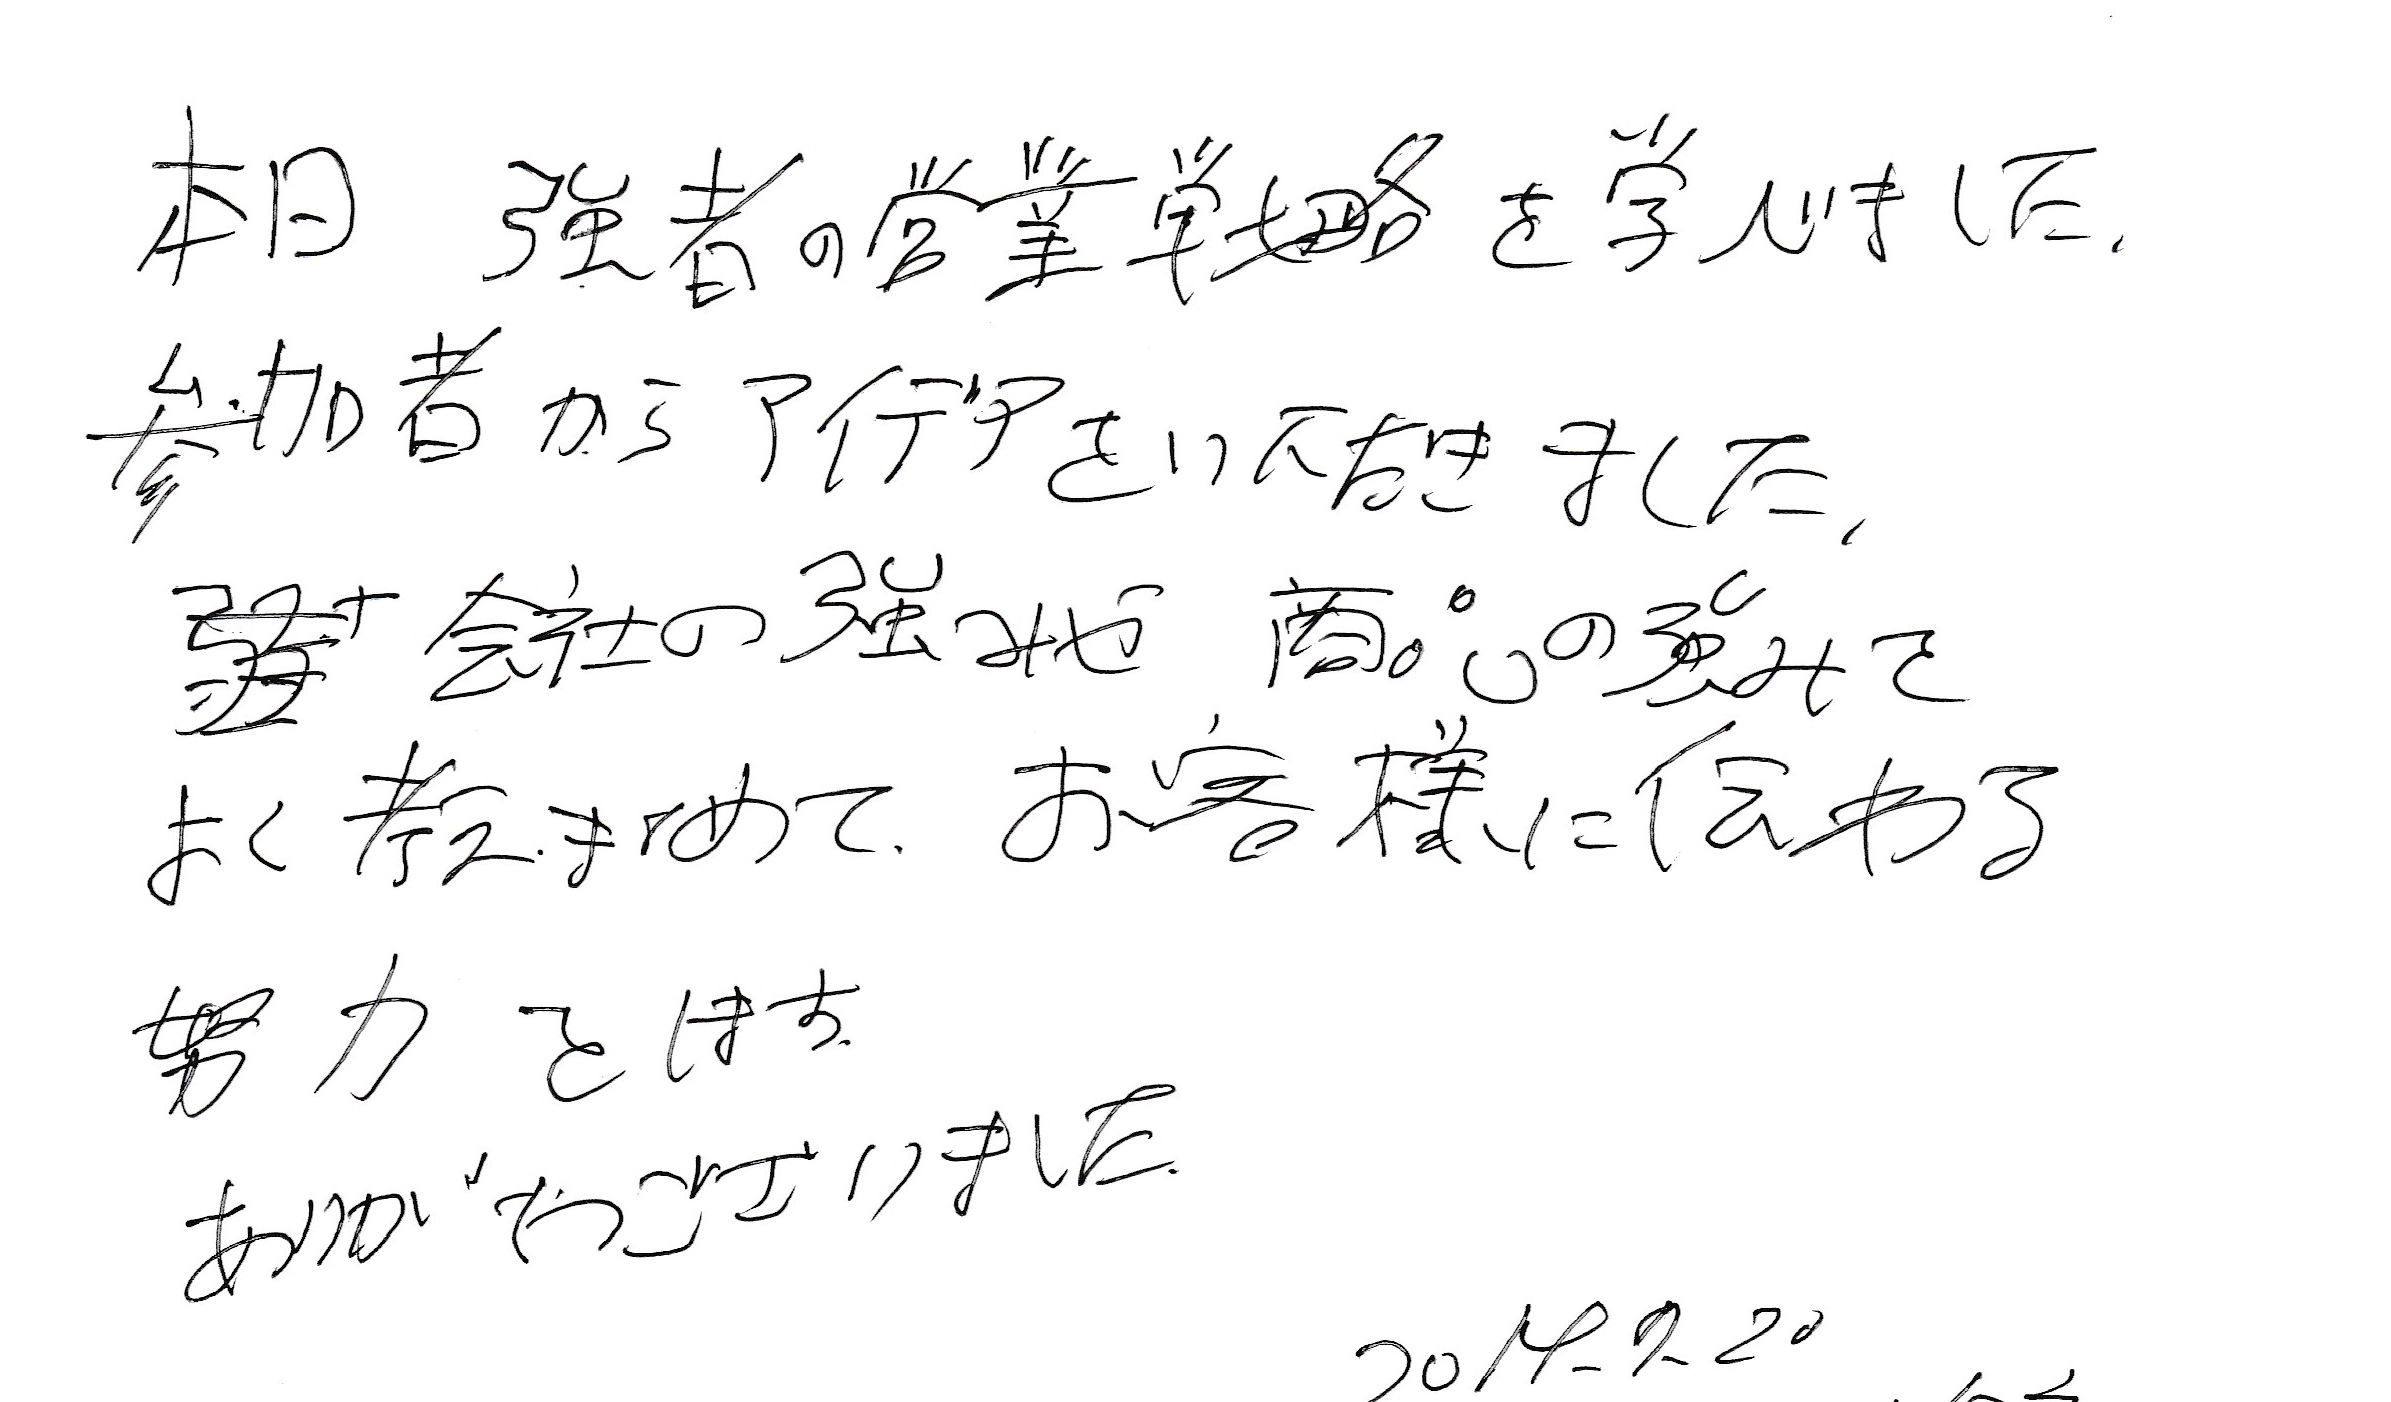 本日 強者の営業戦略を学びました.
参加者からアイデアをいただきました.
会社の強みや商品の強みを
よく考えまとめて.お客様に伝わる
努力をします.
ありがとうございました.
2014.9.20